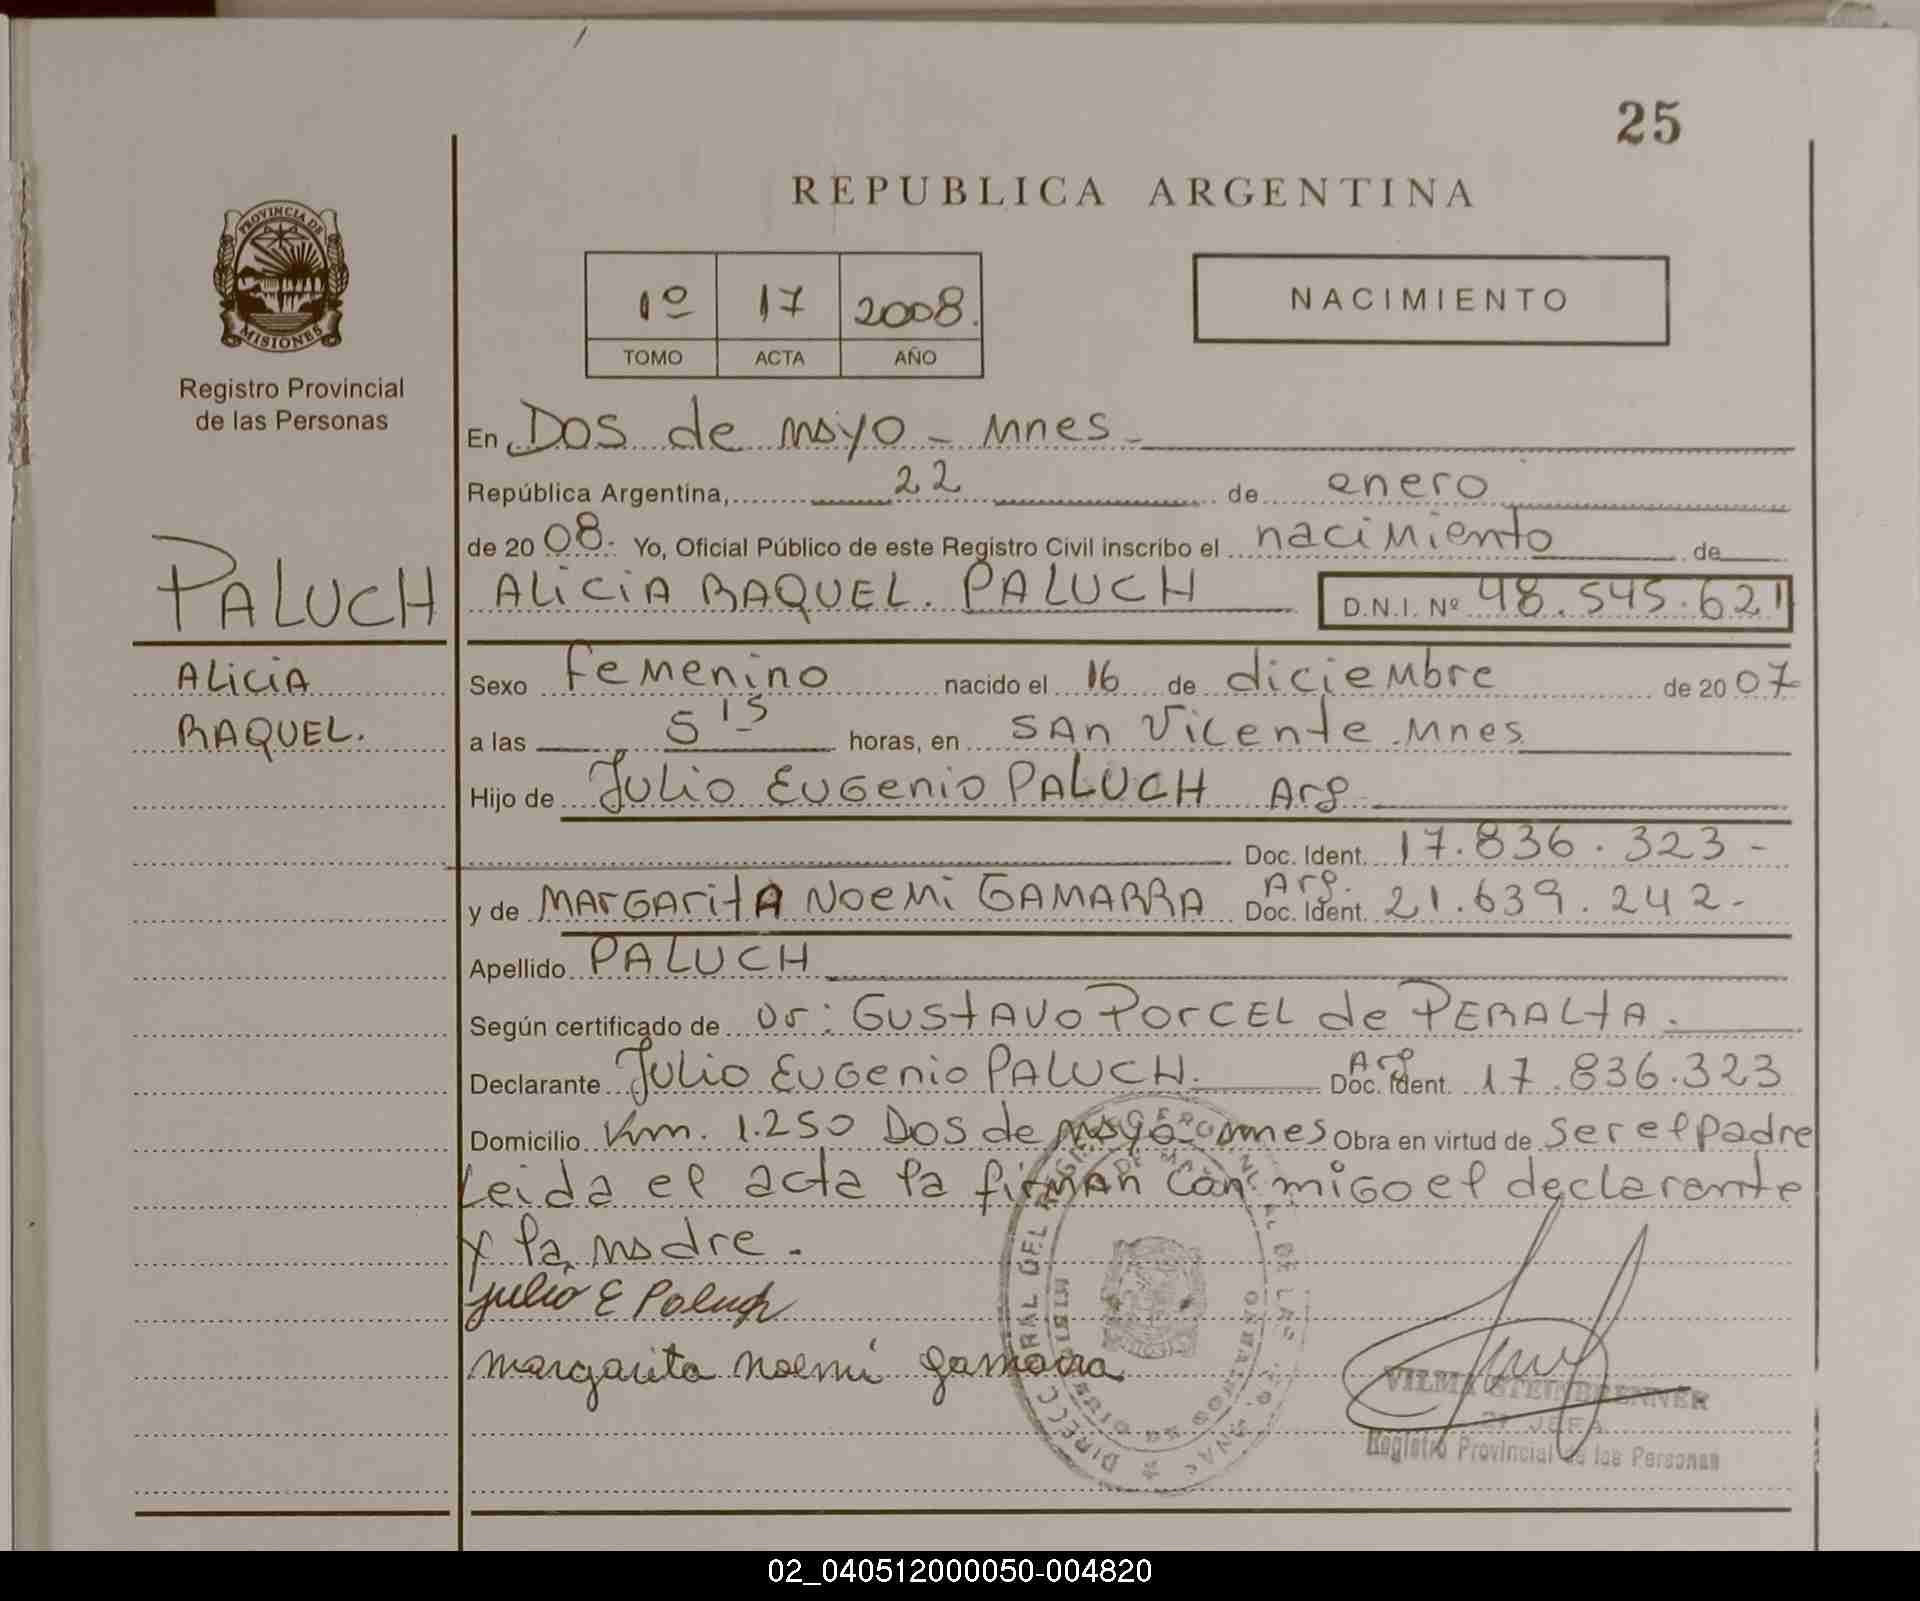 25
REPUBLICA ARGENTINA
PROVINCIA DE
MISIONES
Registro Provincial
de las Personas
1º 17 2008.
TOMO ACTA AÑO
NACIMIENTO
En Dos de mayo - Mnes -
República Argentina, 22 de enero
de 20 08. Yo, Oficial Público de este Registro Civil inscribo el nacimiento de
PALUCH
ALiCiA RAQUEL. PALUCH D.N.I. Nº 48.545.621
ALiCiA
RAQUEL.
Sexo femenino nacido el 16 de diciembre de 20 07
a las 5 15 horas, en SAn Vicente. Mnes
Hijo de Julio EUGenio PALUCH Arg
Doc. Ident. 17.836.323-
y de MArGAritA NoeMi GAMARRA Arg. Doc. Ident. 21.639.242-
Apellido PALUCH
Según certificado de Dr: GUStAVo PorCEL de PERALtA.
Declarante Julio EUGenio PALUCH. Arg Doc. Ident. 17.836.323
Domicilio Km. 1.250 Dos de mayo - mnes Obra en virtud de ser el padre
Leida el acta la firman con migo el declarante
y la madre.
Julio E Paluch
margarita Noemi gamarra
VILMA STEINBRENNER
2ª JEFA
Registro Provincial de las Personas
02_040512000050-004820